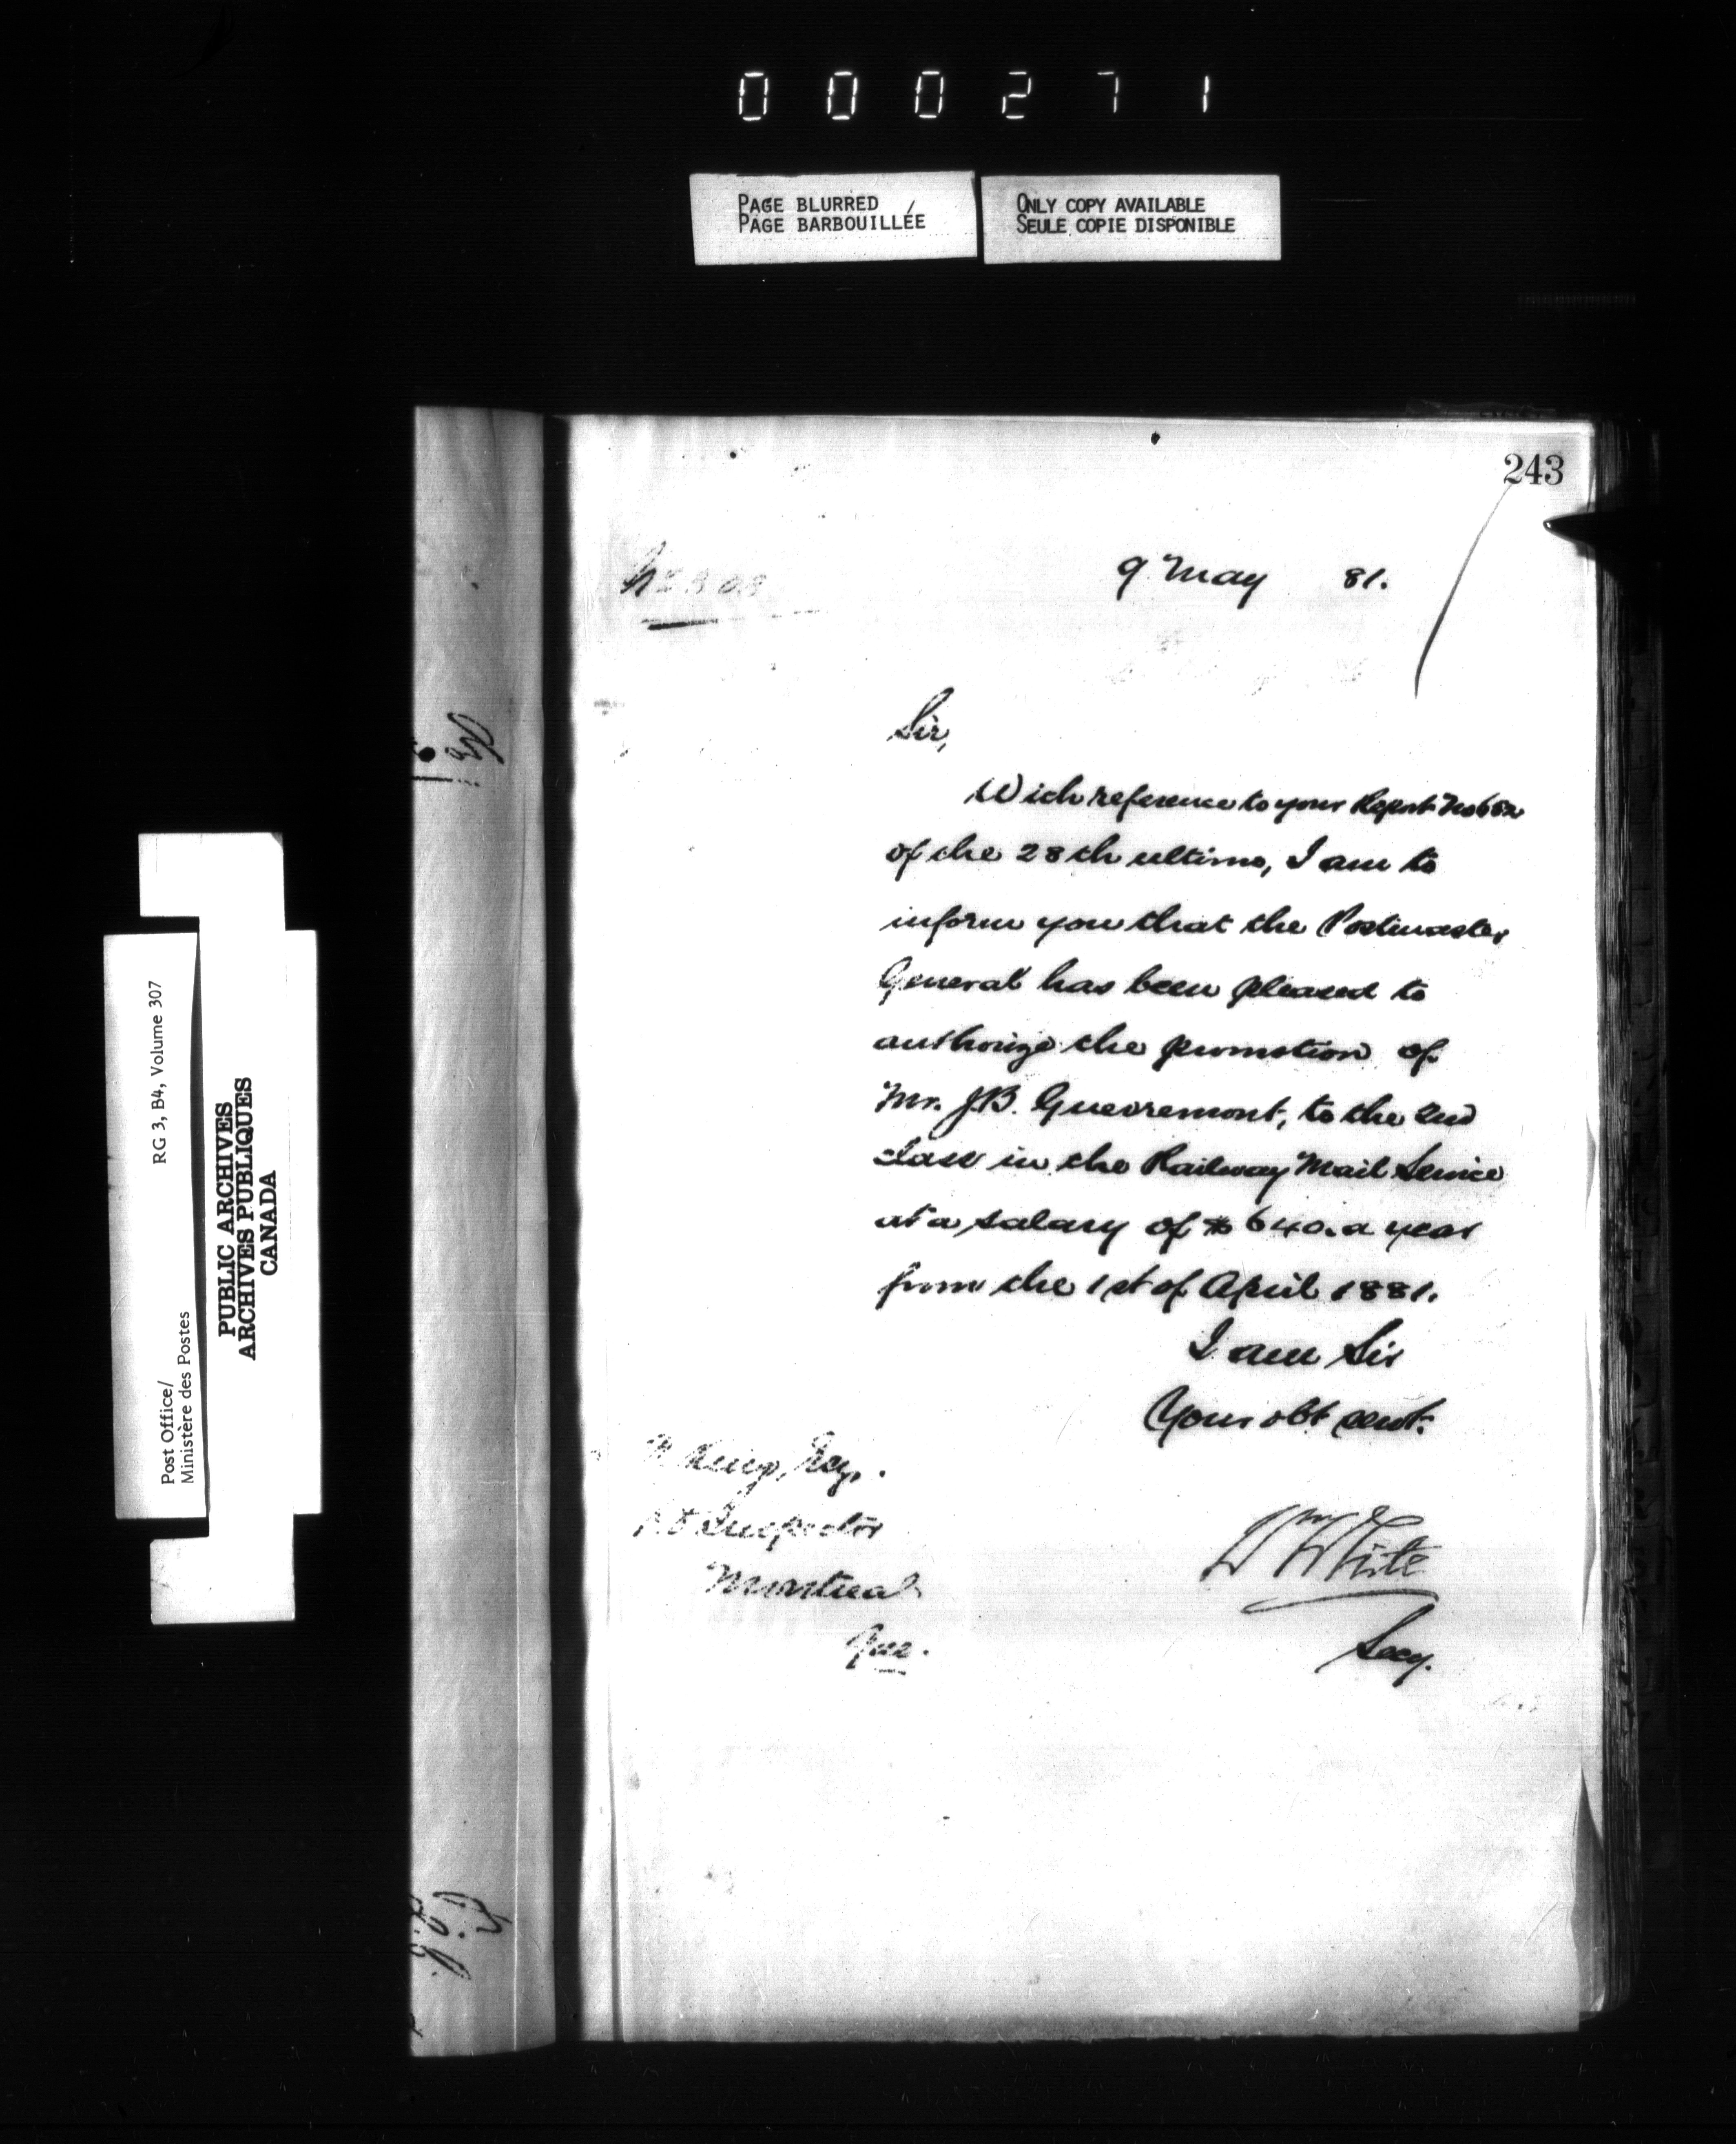 000271
PAGE BLURRED
PAGE BARBOUILLÉE
ONLY COPY AVAILABLE
SEULE COPIE DISPONIBLE
243
9 May 81.
Sir,
With reference to your Report No 682
of the 28th ultimo, I am to
inform you that the Postmaster
General has been pleased to
authorize the promotion of
Mr. J.B. Guevremont, to the 2nd
Class in the Railway Mail Service
at a salary of $640. a year
from the 1st of April 1881.
I am Sir
Your obt servt.
King, Esq.
P.O Inspector
Montreal
Que.
Wm White
Secy.
Post Office/
Ministère des Postes
RG 3, B4, Volume 307
PUBLIC ARCHIVES
ARCHIVES PUBLIQUES
CANADA